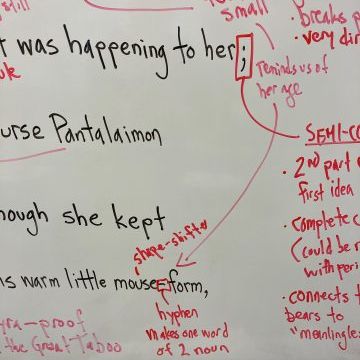 still
small
breaks
very dir
t was happening to her;
reminds us of
her age
urse Pantalaimon
SEMI-CO
2nd part
first idea
hough she kept
complete c
(could be r
with peri
shape-shifter
s warm little mouse-form,
connects t
bears to
"meaningles
hyphen
makes one word
of 2 noun
yra-proof
the Great Taboo